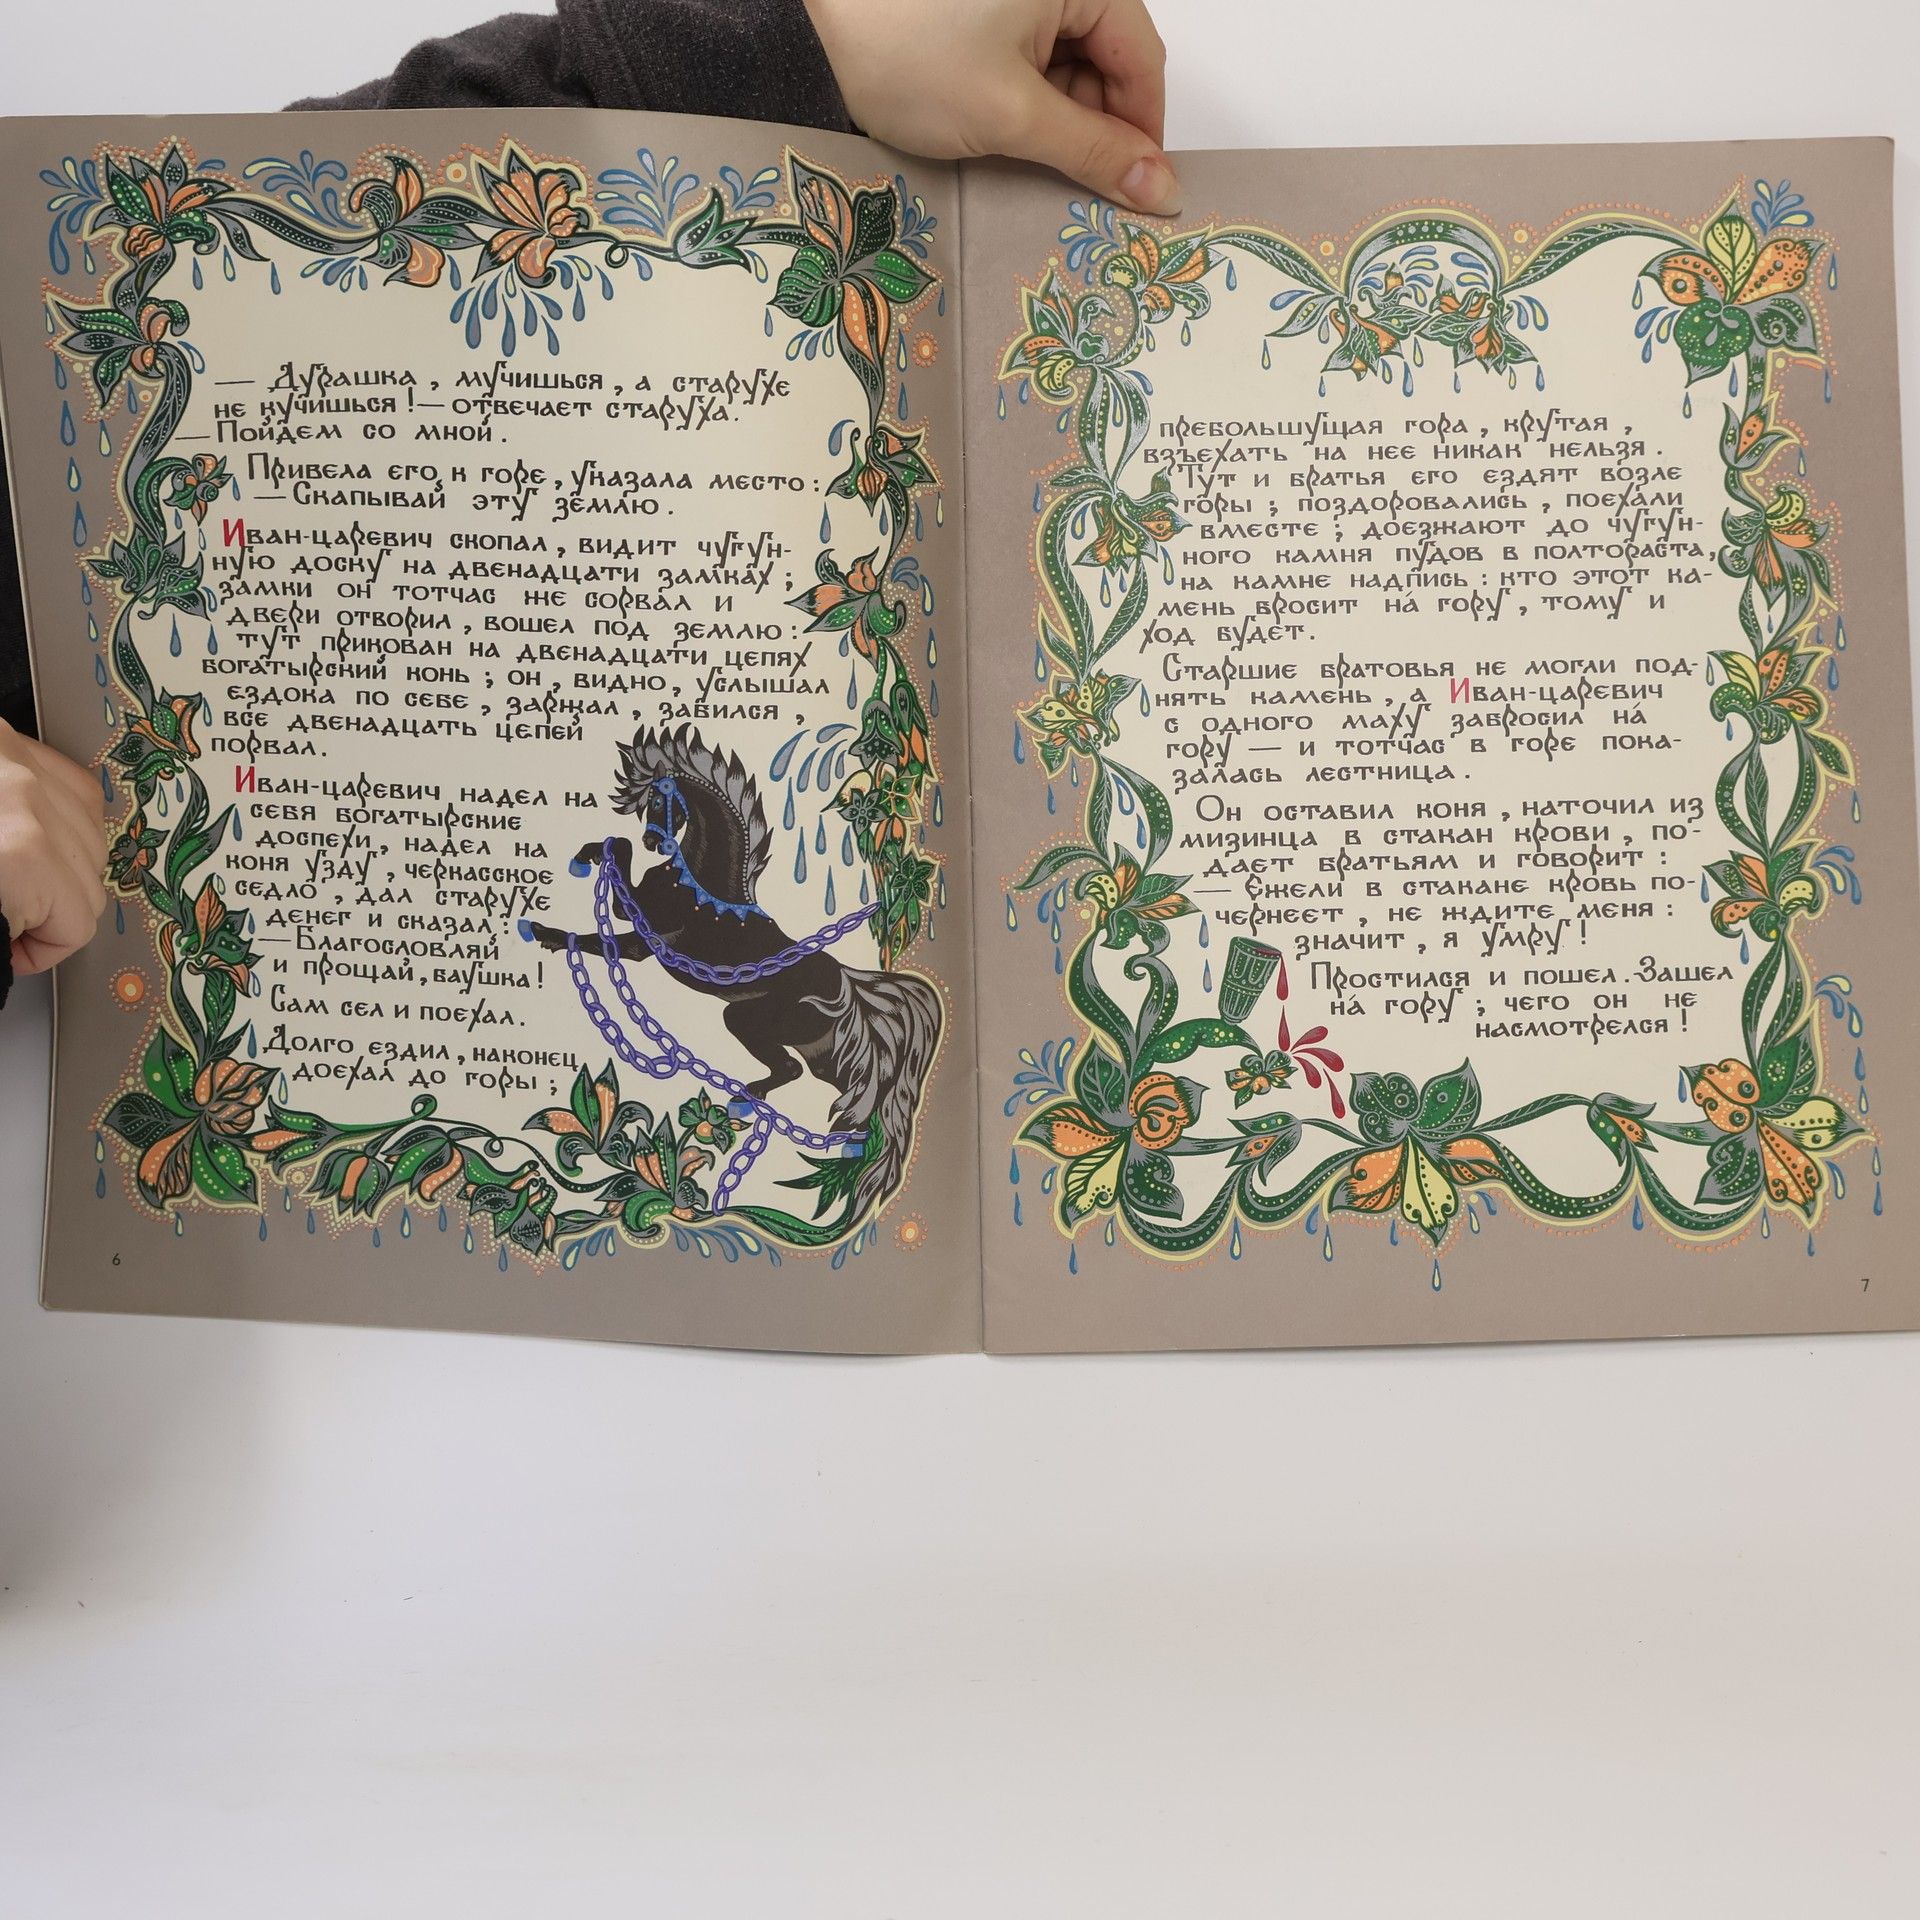 — Дурашка, мучишься, а старухе
не кучишься! — отвечает старуха.
— Пойдем со мной.
Привела его к горе, указала место:
— Скапывай эту землю.
Иван-царевич скопал, видит чугун-
ную доску на двенадцати замках;
замки он тотчас же сорвал и
двери отворил, вошел под землю:
тут прикован на двенадцати цепях
богатырский конь; он, видно, услышал
ездока по себе, заржал, забился,
все двенадцать цепей
порвал.
Иван-царевич надел на
себя богатырские
доспехи, надел на
коня узду, черкасское
седло, дал старухе
денег и сказал:
— Благословляй
и прощай, баушка!
Сам сел и поехал.
Долго ездил, наконец
доехал до горы;
6
пребольшущая гора, крутая,
взъехать на нее никак нельзя.
Тут и братья его ездят возле
горы; поздоровались, поехали
вместе; доезжают до чугун-
ного камня пудов в полтораста,
на камне надпись: кто этот ка-
мень бросит на́ гору, тому и
ход будет.
Старшие братовья не могли под-
нять камень, а Иван-царевич
с одного маху забросил на́
гору — и тотчас в горе пока-
залась лестница.
Он оставил коня, наточил из
мизинца в стакан крови, по-
дает братьям и говорит:
— Ежели в стакане кровь по-
чернеет, не ждите меня:
значит, я умру!
Простился и пошел. Зашел
на́ гору; чего он не
насмотрелся!
7